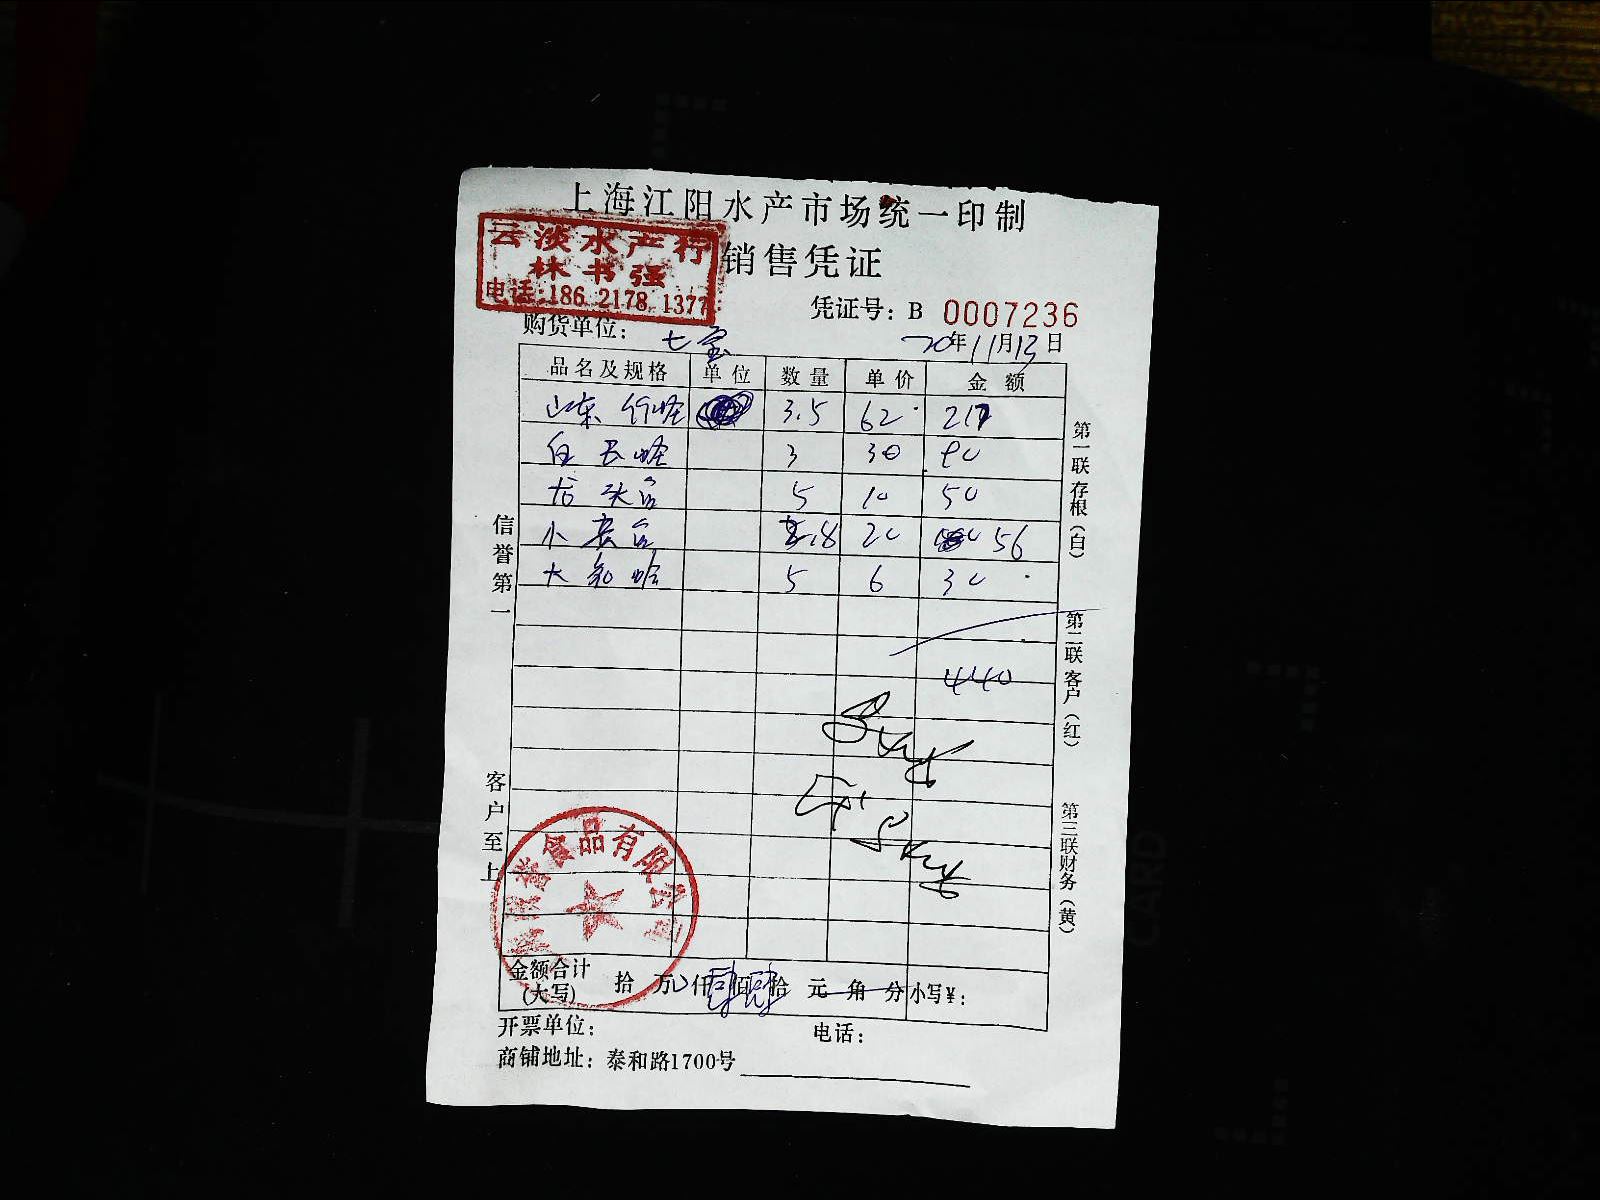 上海江阳水产市场统一印制
云淡水产行
林书强
电话:186 2178 1377
销售凭证
凭证号: B 0007236
购货单位: 七宝
20年11月13日
品名及规格 单位 数量 单价 金额
山东 蛏 3.5 62 217
白 蛏 3 30 90
5 10 50
小 2.8 20 56
大 蛤 5 6 30
440
信誉第一
客户至上
第一联存根(白)
第二联客户(红)
第三联财务(黄)
食品有限公司
金额合计
(大写) 拾 万 仟 肆佰肆拾 元 角 分 小写¥:
开票单位: 电话:
商铺地址: 泰和路1700号